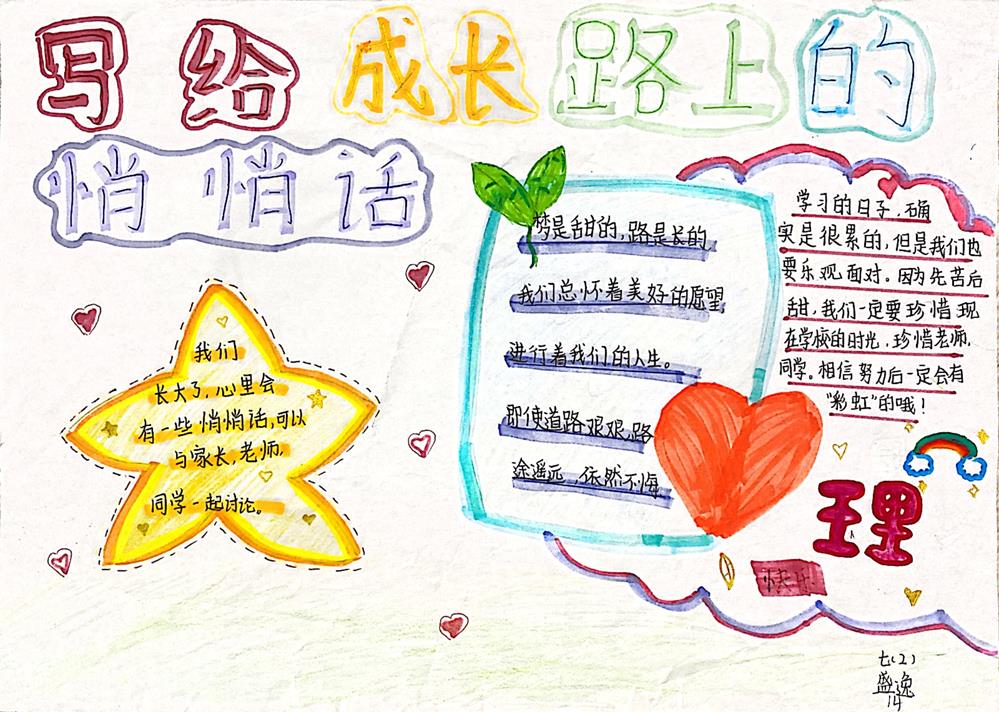 写给成长路上的
悄悄话
我们
长大了,心里会
有一些悄悄话,可以
与家长,老师,
同学一起讨论。
梦是甜甜的,路是长的,
我们总怀着美好的愿望
进行着我们的人生。
即使道路艰艰,路
途遥远,依然不悔
学习的日子,确
实是很累的,但是我们也
要乐观面对。因为先苦后
甜,我们一定要珍惜现
在学校的时光,珍惜老师,
同学。相信努力后一定会有
"彩虹"的哦!
理
快乐
七(2)
盛逸
14